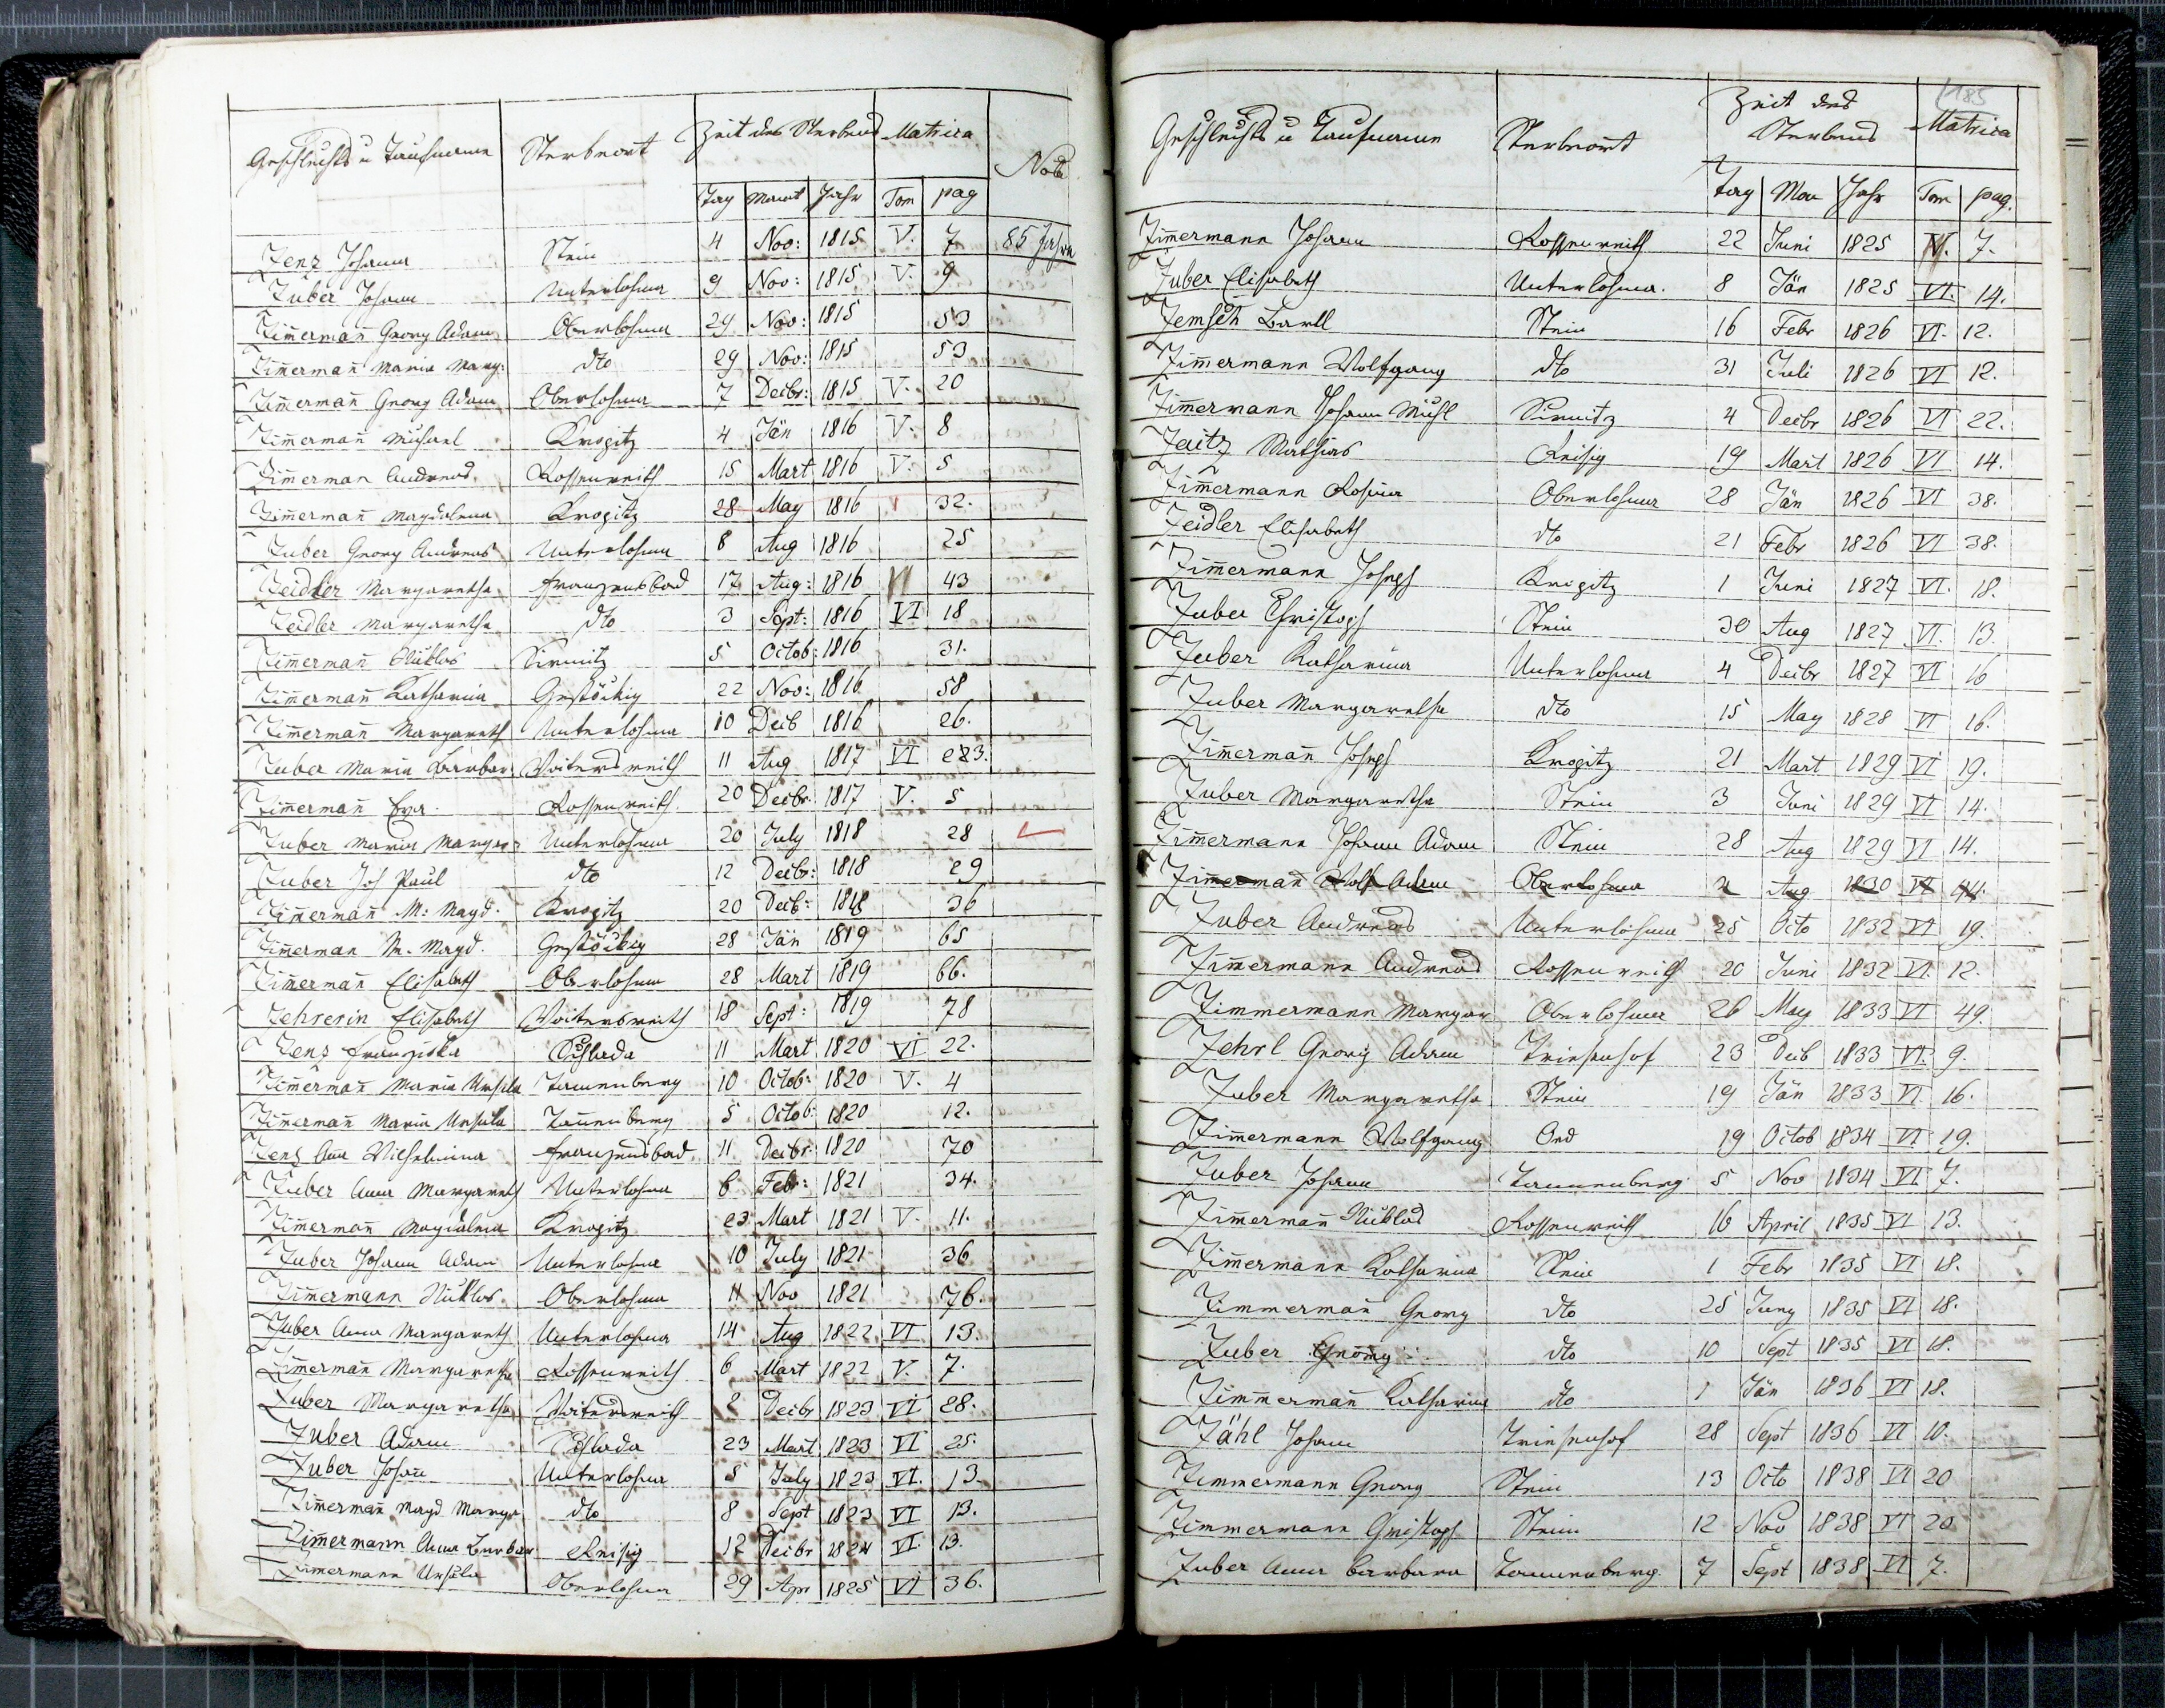 Geschlechts u Taufname Sterbeort Zeit des Sterbens Matrica Nota
Tag Monat Jahr Tom pag
Zenz Johanna Stein 4 Nov: 1815 V. 7 85 Jahre
Zuber Johann Unterlohma 9 Nov: 1815 V. 9
Zim̄erman̄ Georg Adam Oberlohma 29 Nov: 1815 53
Zim̄erman̄ Maria Marg: dto 29 Nov: 1815 53
Zim̄erman̄ Georg Adam Oberlohma 7 Decbr: 1815 V. 20
Zim̄erman̄ Michael Kropitz 4 Jän 1816 V. 8
Zim̄erman Andreas Rossenreith 15 Mart 1816 V. 5
Zim̄erman̄ Magdalena Kropitz 28 May 1816 32.
Zuber Georg Andreas Unterlohma 8 Aug 1816 25
Zeidler Margaretha Franzensbad 17 Aug: 1816 VI 43
Zeidler Margaretha dto 3 Sept: 1816 VI 18
Zim̄erman̄ Niklas Sirmitz 5 Octob: 1816 31.
Zim̄erman̄ Katharina Gestöckig 22 Nov: 1816 58
Zim̄erman̄ Margareth Unterlohma 10 Decb 1816 26.
Zuber Maria Barbar: Voitersreith 11 Aug 1817 VI 223.
Zim̄erman̄ Eva Rossenreith 20 Decbr 1817 V. 5
Zuber Maria Margar Unterlohma 20 July 1818 28
Zuber Jos Paul dto 12 Decbr: 1818 29
Zim̄erman̄ M: Magd. Kropitz 20 Decb: 1818 36
Zim̄erman M. Magd. Gestöckig 28 Jän 1819 65
Zim̄erman̄ Elisabeth Oberlohma 28 Mart 1819 66.
Zehrerin Elisabeth Voitersreith 18 Sept: 1819 78
Zenz Franziska Schlada 11 Mart 1820 VI 22.
Zim̄erman̄ Maria Ursula Tannenberg 10 Octob: 1820 V. 4
Zim̄erman̄ Maria Ursula Tan̄enberg 5 Octob: 1820 12.
Zenz Ana Wilhelmina Franzensbad 11 Decbr 1820 70
Zuber Anna Margareth Unterlohma 6 Febr: 1821 34.
Zim̄erman̄ Magdalena Kropitz 23 Mart 1821 V. 11.
Zuber Johann Adam Unterlohma 10 July 1821 36
Zim̄ermann Niklas Oberlohma 11 Nov 1821 76.
Zuber Anna Margareth Unterlohma 14 Aug 1822 VI 13.
Zim̄erman̄ Margaretha Rossenreith 6 Mart 1822 V. 7.
Zuber Margaretha Voitersreith 2 Decbr 1823 VI 28.
Zuber Adam Schlada 23 Mart 1823 VI 25.
Zuber Johan̄ Unterlohma 5 July 1823 VI. 13.
Zim̄erman̄ Magd Marga dto 8 Sept 1823 VI 13.
Zim̄ermann Anna Barbar Reisig 12 Decbr 1824 VI. 13.
Zim̄ermann Ursula Oberlohma 29 Apr 1825 VI 36.
185
Geschlechts u Taufname Sterbeort Zeit des Sterbens Matrica
Tag Mon Jahr Tom pag.
Zim̄ermann Johann Rossenreith 22 Juni 1825 VI. 7.
Zuber Elisabeth Unterlohma. 8 Jän 1825 VI. 14.
Zemsch Bartl Stein 16 Febr 1826 VI. 12.
Zim̄ermann Wolfgang dto 31 Juli 1826 VI 12.
Zim̄ermann Johann Michl Sirmitz 4 Decbr 1826 VI 22.
Zeitz Mathias Reisig 19 Mart 1826 VI 14.
Zim̄ermann Rosina Oberlohma 28 Jän 1826 VI 38.
Zeidler Elisabeth dto 21 Febr 1826 VI 38.
Zim̄ermann Joseph Kropitz 1 Juni 1827 VI. 18.
Zuber Christoph Stein 30 Aug 1827 VI. 13.
Zuber Katharina Unterlohma 4 Decbr 1827 VI 16
Zuber Margaretha dto 15 May 1828 VI 16.
Zim̄erman̄ Joseph Kropitz 21 Mart 1829 VI 19.
Zuber Margaretha Stein 3 Juni 1829 VI 14.
Zim̄ermann Johann Adam Stein 28 Aug 1829 VI 14.
Zim̄erman̄ Wolf Adam Oberlohma 2 Aug 1830 VI 44.
Zuber Andreas Unterlohma 25 Octo 1832 VI 19.
Zim̄ermann Andreas Rossenreith 20 Juni 1832 VI. 12.
Zimmermann Margar Oberlohma 26 May 1833 VI 49.
Zehrl Georg Adam Triesenhof 23 Decb 1833 VI. 9.
Zuber Margaretha Stein 19 Jän 1833 VI. 16.
Zim̄ermann Wolfgang Oed 19 Octob 1834 VI. 19.
Zuber Johann Tannenberg 5 Nov 1834 VI 7.
Zim̄erman̄ Niklas Rossenreith 16 April 1835 VI 13.
Zim̄ermann Katharina Stein 1 Febr 1835 VI 18.
Zimmerman̄ Georg dto 25 Juny 1835 VI 18.
Zuber Georg dto 10 Sept 1835 VI 18.
Zim̄merman̄ Katharina dto 1 Jän 1836 VI 18.
Zähl Johann Triesenhof 28 Sept 1836 VI 10.
Zimmermann Georg Stein 13 Octo 1838 VI 20
Zimmermann Christoph Stein 12 Nov 1838 VI 20
Zuber Anna Barbara Tannenberg. 7 Sept 1838 VI 7.